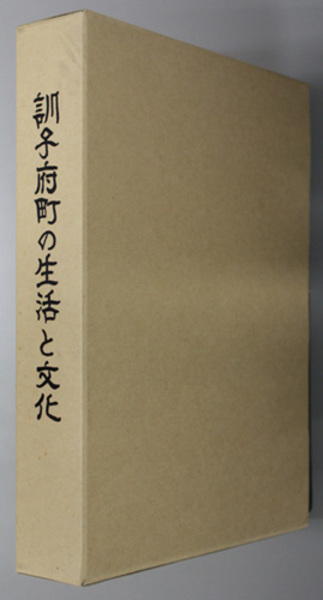 訓子府町の生活と文化